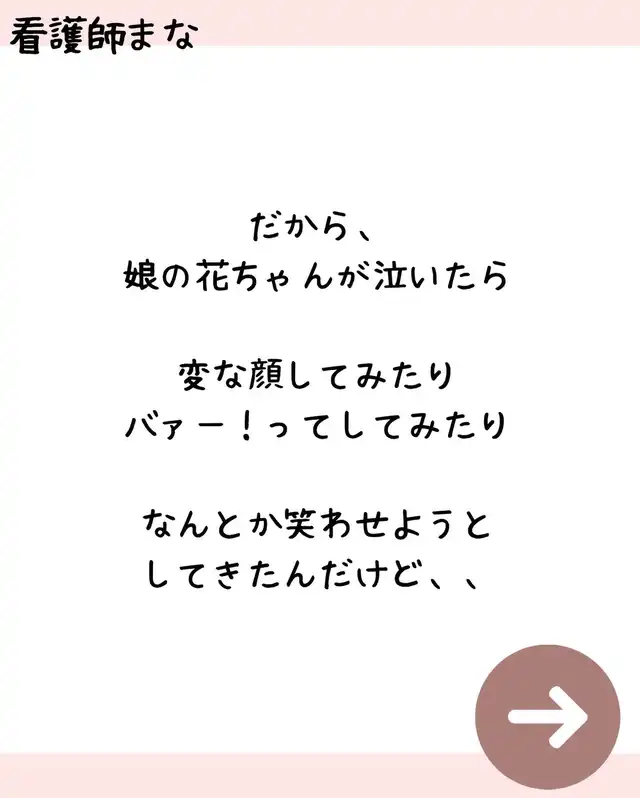 看護師まな
だから、
娘の花ちゃんが泣いたら
変な顔してみたり
バァー！ってしてみたり
なんとか笑わせようと
してきたんだけど、、